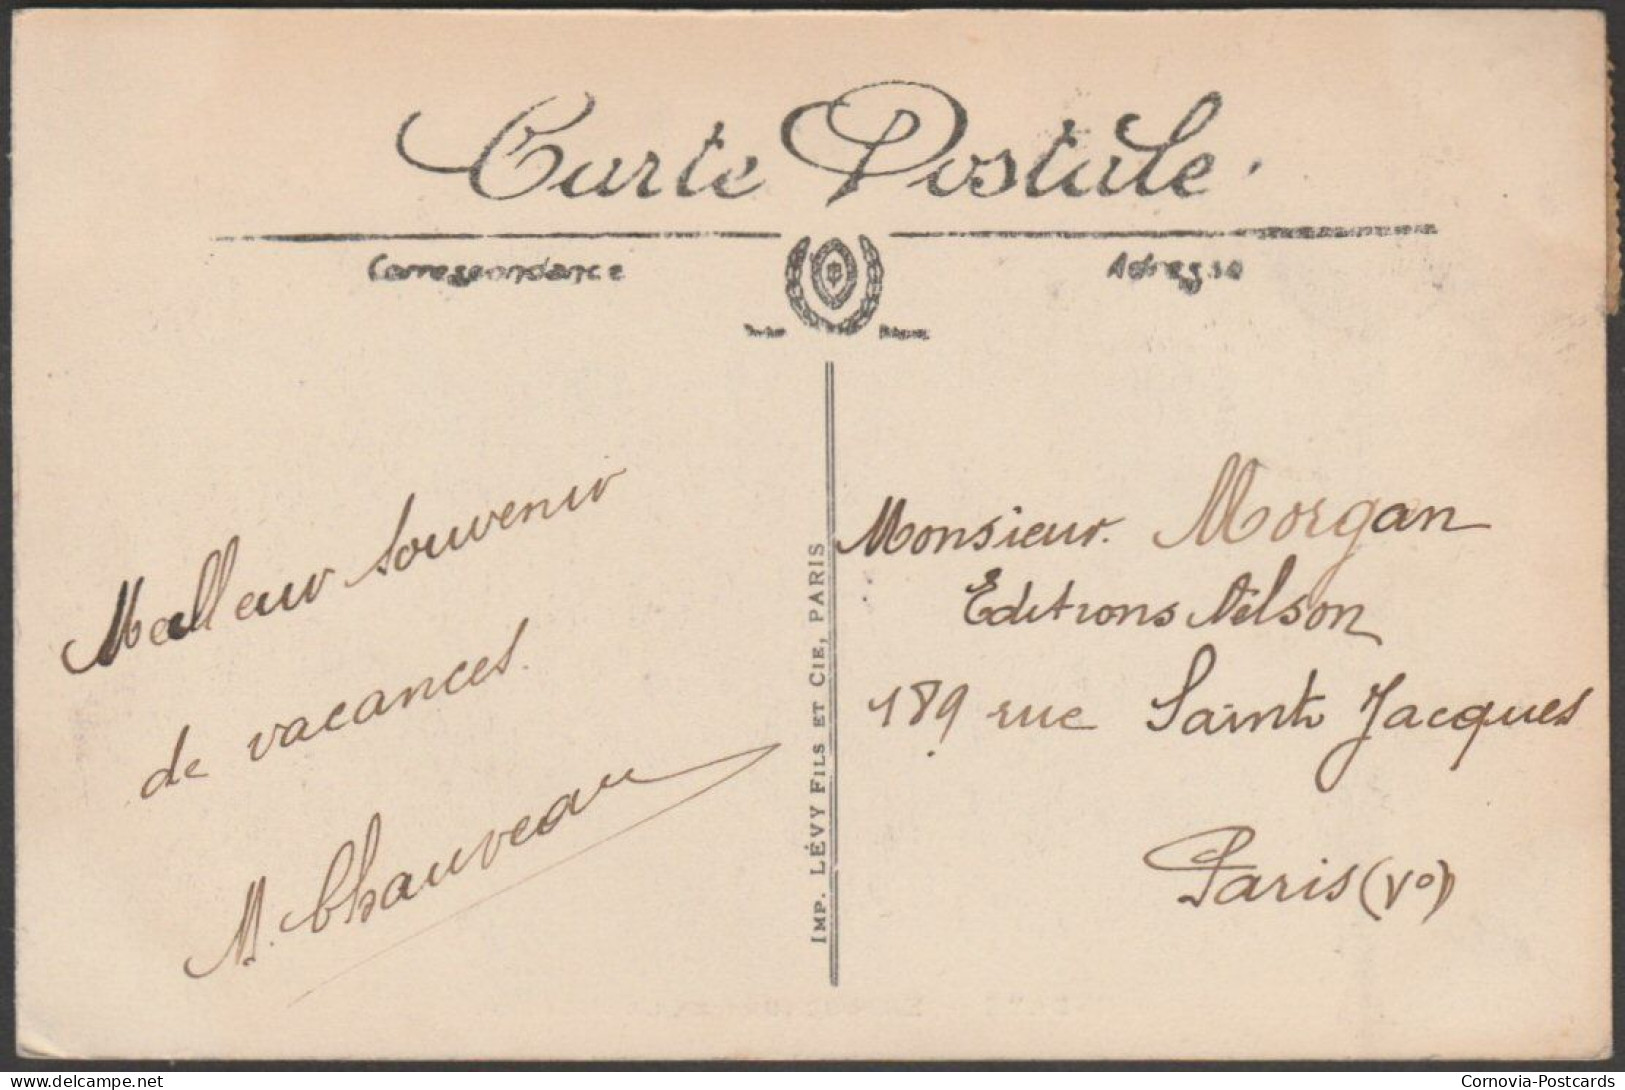 Carte Postale.
Correspondance
Adresse
Meilleur souvenir
de vacances.
M. Chauveau
IMP. LÉVY FILS ET CIE, PARIS
Monsieur. Morgan
Editions Nelson
189 rue Saint Jacques
Paris (Vº)
delcampe.net
Cornovia-Postcards